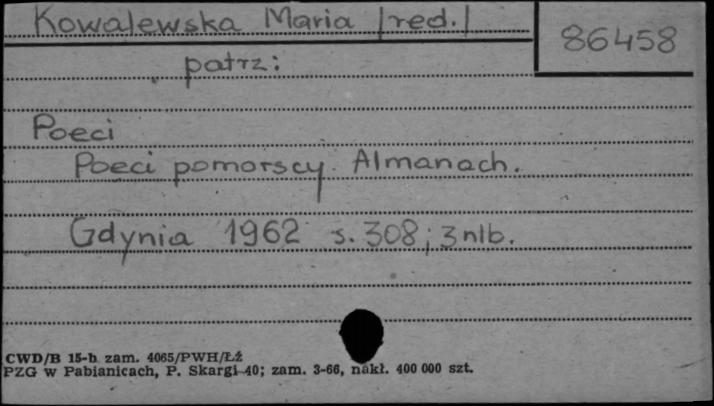 Kowalewska Maria /red./
86458
patrz:
Poeci
Poeci pomorscy. Almanach.
Gdynia 1962 s. 308; 3 nlb.
CWD/B 15-b zam. 4065/PWH/ŁŻ
PZG w Pabianicach, P. Skargi 40; zam. 3-66, nakł. 400 000 szt.